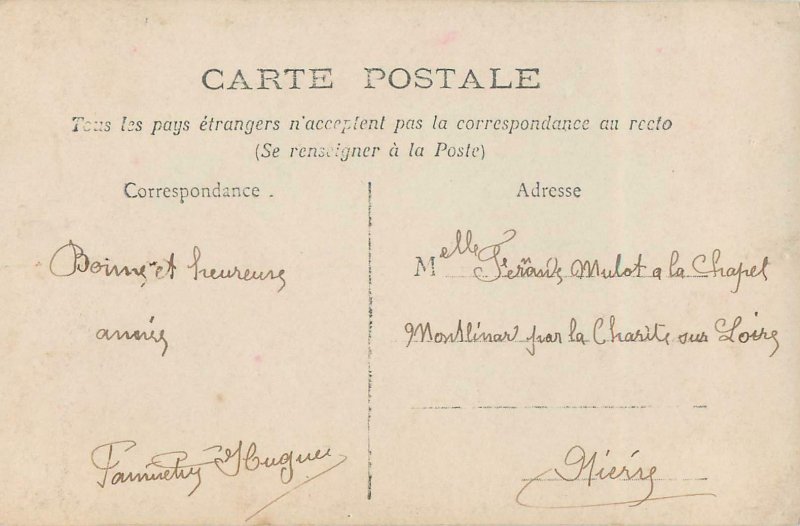 CARTE POSTALE
Tous les pays étrangers n'acceptent pas la correspondance au recto
(Se renseigner à la Poste)
Correspondance.
Adresse
Bonne et heureuse
année
Hugues
Melle Mulot a la Chapel
Montlinar par la Charité sur Loire
Nièvre